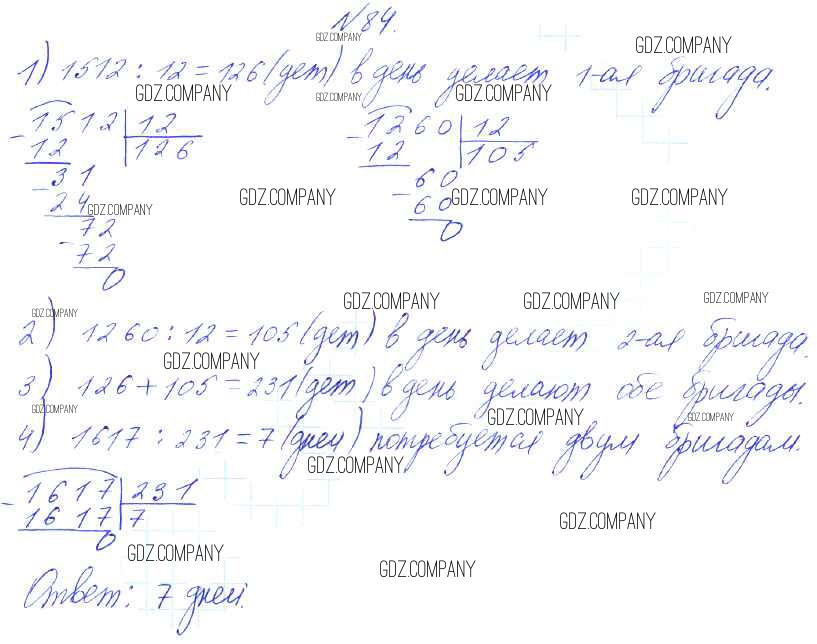 №84.
GDZ.COMPANY
GDZ.COMPANY
1) 1512 : 12 = 126 (дет) в день делает 1-ая бригада.
GDZ.COMPANY GDZ.COMPANY GDZ.COMPANY
- 1512 | 12 - 1260 | 12
12 | 126 12 | 105
- 31 - 60
24 60
GDZ.COMPANY GDZ.COMPANY GDZ.COMPANY GDZ.COMPANY
- 72 0
72
0
GDZ.COMPANY GDZ.COMPANY GDZ.COMPANY GDZ.COMPANY
2) 1260 : 12 = 105 (дет) в день делает 2-ая бригада.
GDZ.COMPANY
3) 126 + 105 = 231 (дет) в день делают обе бригады.
GDZ.COMPANY GDZ.COMPANY GDZ.COMPANY
4) 1617 : 231 = 7 (дней) потребуется двум бригадам.
GDZ.COMPANY
- 1617 | 231
1617 | 7
0
GDZ.COMPANY
GDZ.COMPANY GDZ.COMPANY
Ответ: 7 дней.